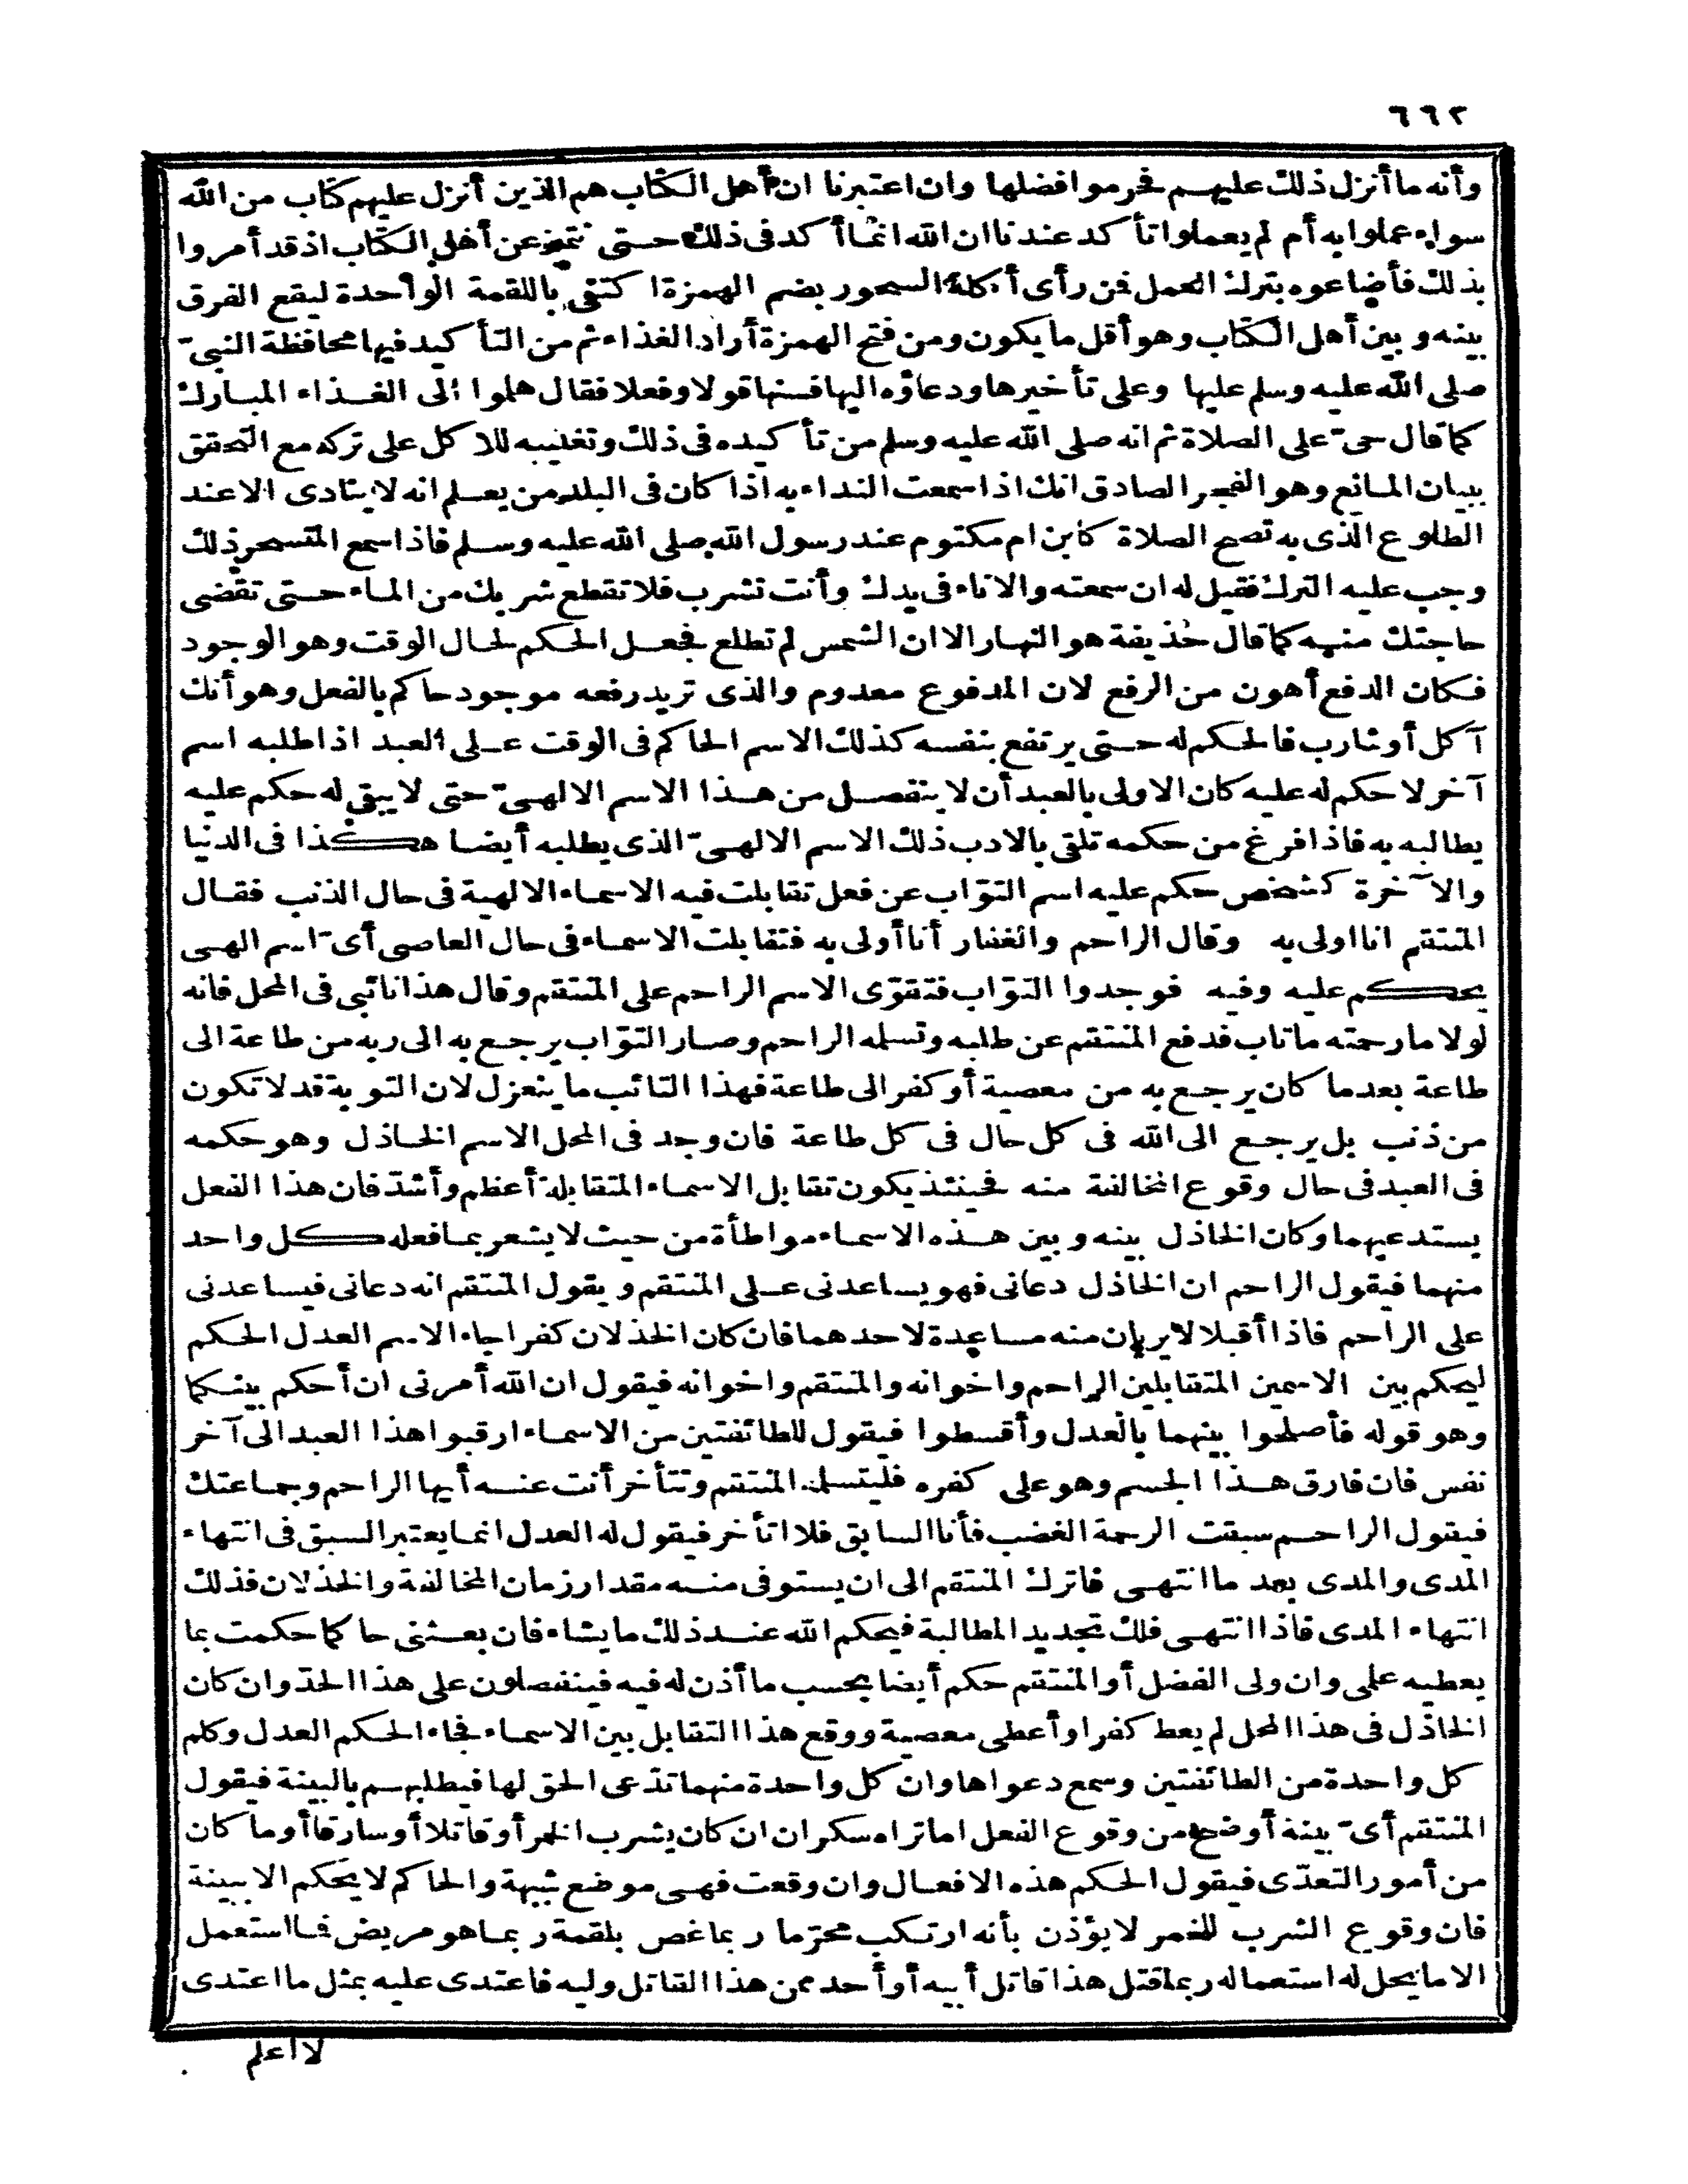 ٦٦٢
وأنه ما أنزل ذلك عليهم فحرموا فضلها وان اعتبرنا ان أهل الكتاب هم الذين أنزل عليهم كتاب من الله
سواء عملوا به أم لم يعملوا تأكد عندنا ان الله انما أكد فى ذلك حتى نتميز عن أهل الكتاب اذ قد أمروا
بذلك فأضاعوه بترك العمل فمن رأى أكلة السحور بضم الهمزة اكتفى باللقمة الواحدة ليقع الفرق
بينه وبين أهل الكتاب وهو أقل ما يكون ومن فتح الهمزة أراد الغذاء ثم من التأكيد فيها محافظة النبىّ
صلى الله عليه وسلم عليها وعلى تأخيرها ودعاؤه اليها فسنها قولا وفعلا فقال هلموا الى الغذاء المبارك
كما قال حىّ على الصلاة ثم انه صلى الله عليه وسلم من تأكيده فى ذلك وتغنيبه للاكل على تركه مع التحقق
ببيان المانع وهو الفجر الصادق انك اذا سمعت النداء به اذا كان فى البلد من يعلم انه لا ينادى الا عند
الطلوع الذى به تصح الصلاة كابن ام مكتوم عند رسول الله صلى الله عليه وسلم فاذا سمع المتسحر ذلك
وجب عليه الترك فقيل له ان سمعته والاناء فى يدك وأنت تشرب فلا تقطع شربك من الماء حتى تقضى
حاجتك منه كما قال حذيفة هو النهار الا ان الشمس لم تطلع فجعل الحكم لحال الوقت وهو الوجود
فكان الدفع أهون من الرفع لان المدفوع معدوم والذى تريد رفعه موجود حاكم بالفعل وهو أنك
آكل أو شارب فالحكم له حتى يرتفع بنفسه كذلك الاسم الحاكم فى الوقت على العبد اذا طلبه اسم
آخر لا حكم له عليه كان الاولى بالعبد أن لا ينفصل من هذا الاسم الالهىّ حتى لا يبقى له حكم عليه
يطالبه به فاذا فرغ من حكمه تلقى بالادب ذلك الاسم الالهىّ الذى يطلبه أيضا هكذا فى الدنيا
والآخرة كشخص حكم عليه اسم التوّاب عن فعل تقابلت فيه الاسماء الالهية فى حال الذنب فقال
المنتقم انا اولى به وقال الراحم والغفار أنا أولى به فتقابلت الاسماء فى حال العاصى أىّ اسم الهى
يحكم عليه وفيه فوجدوا التوّاب فتقوّى الاسم الراحم على المنتقم وقال هذا نائبى فى المحل فانه
لولا ما رحمته ما تاب فدفع المنتقم عن طلبه وتسلمه الراحم وصار التوّاب يرجع به الى ربه من طاعة الى
طاعة بعد ما كان يرجع به من معصية أو كفر الى طاعة فهذا التائب ما ينعزل لان التوبة قد لا تكون
من ذنب بل يرجع الى الله فى كل حال فى كل طاعة فان وجد فى المحل الاسم الخاذل وهو حكمه
فى العبد فى حال وقوع المخالفة منه فحينئذ يكون تقابل الاسماء المتقابلة أعظم وأشدّ فان هذا الفعل
يستدعيهما وكان الخاذل بينه وبين هذه الاسماء مواطأة من حيث لا يشعر بما فعله كل واحد
منهما فيقول الراحم ان الخاذل دعانى فهو يساعدنى على المنتقم ويقول المنتقم انه دعانى فيساعدنى
على الراحم فاذا أقبلا لا يريان منه مساعدة لاحدهما فان كان الخذلان كفرا جاء الاسم العدل الحكم
ليحكم بين الاسمين المتقابلين الراحم واخوانه والمنتقم واخوانه فيقول ان الله أمرنى ان أحكم بينكما
وهو قوله فأصلحوا بينهما بالعدل وأقسطوا فيقول للطائفتين من الاسماء ارقبوا هذا العبد الى آخر
نفس فان فارق هذا الجسم وهو على كفره فليتسلمه المنتقم وتتأخر أنت عنه أيها الراحم وجماعتك
فيقول الراحم سبقت الرحمة الغضب فأنا السابق فلا اتأخر فيقول له العدل انما يعتبر السبق فى انتهاء
المدى والمدى بعد ما انتهى فاترك المنتقم الى ان يستوفى منه مقدار زمان المخالفة والخذلان فذلك
انتهاء المدى فاذا انتهى فلك تجديد المطالبة فيحكم الله عند ذلك ما يشاء فان بعثنى حاكما حكمت بما
يعطيه علمى وان ولى الفضل أو المنتقم حكم أيضا بحسب ما أذن له فيه فينفصلون على هذا الحدّ وان كان
الخاذل فى هذا المحل لم يعط كفرا وأعطى معصية ووقع هذا التقابل بين الاسماء فجاء الحكم العدل وكلم
كل واحدة من الطائفتين وسمع دعواها وان كل واحدة منهما تدّعى الحق لها فيطلبهم بالبينة فيقول
المنتقم أىّ بينة أوضح من وقوع الفعل اما تراه سكران ان كان يشرب الخمر أو قاتلا أو سارقا أو ما كان
من أمور التعدّى فيقول الحكم هذه الافعال وان وقعت فهى موضع شبهة والحاكم لا يحكم الا ببينة
فان وقوع الشرب للخمر لا يؤذن بأنه ارتكب محرّما ربما غص بلقمة ربما هو مريض فما استعمل
الا ما يحل له استعماله ربما قتل هذا قاتل أبيه أو أحد ممن هذا القاتل وليه فاعتدى عليه بمثل ما اعتدى
لا اعلم